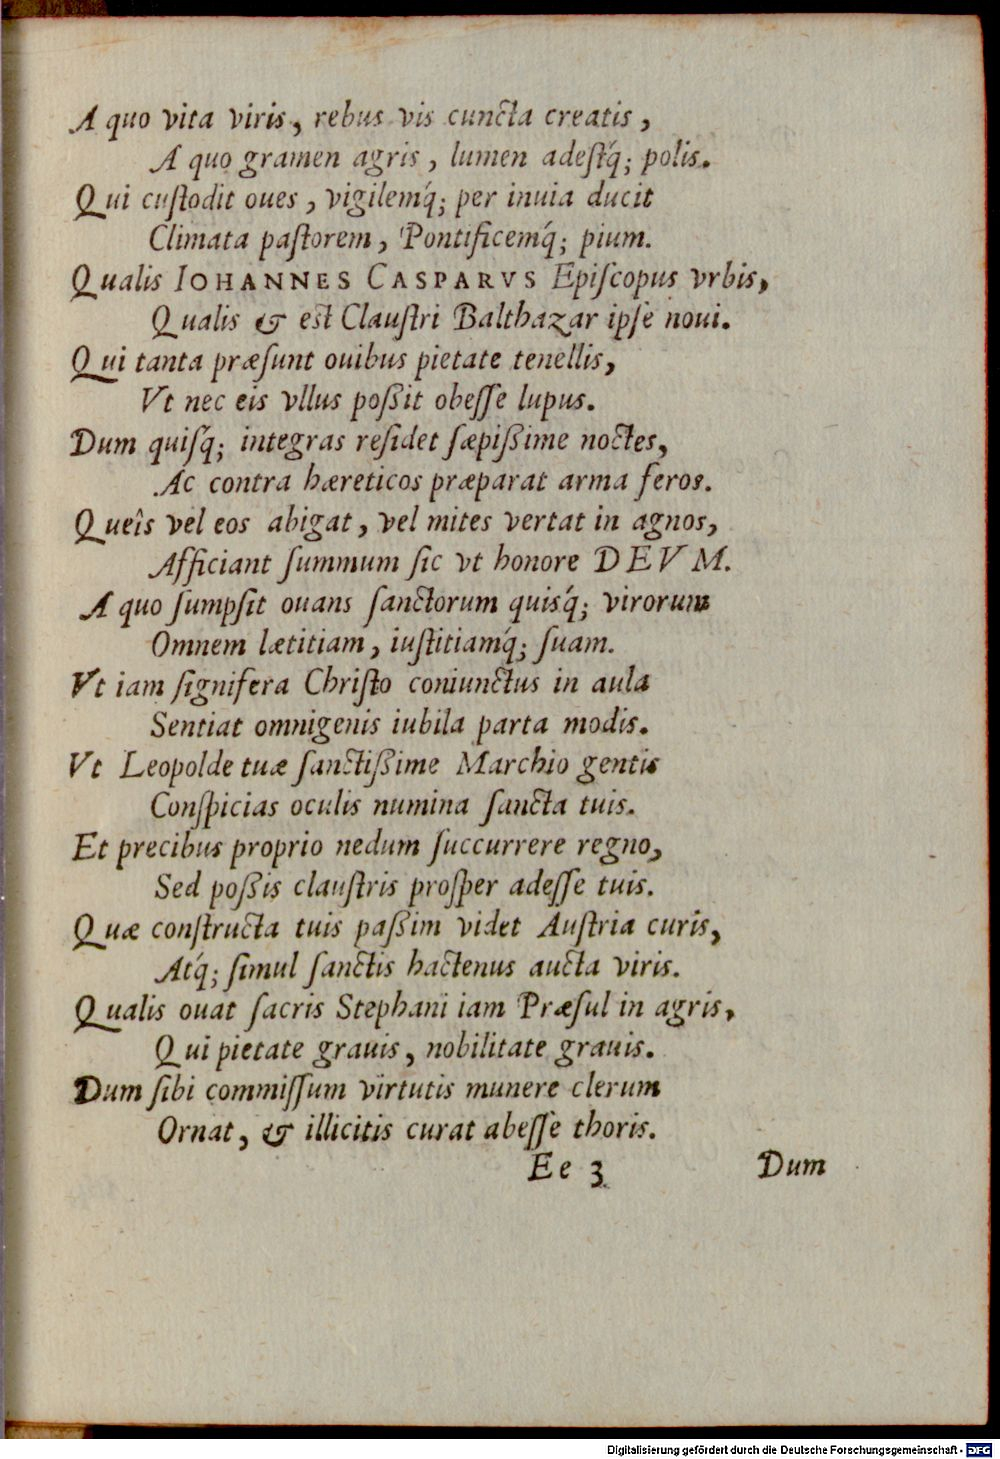 A quo vita viris, rebus vis cuncta creatis,
A quo gramen agris, lumen adeſtq́; polis.
Qui cuſtodit oues, vigilemq́; per inuia ducit
Climata paſtorem, Pontificemq́; pium.
Qualis IOHANNES CASPARVS Epiſcopus vrbis,
Qualis & eſt Clauſtri Balthazar ipſe noui.
Qui tanta præſunt ouibus pietate tenellis,
Vt nec eis vllus poßit obeſſe lupus.
Dum quiſq́; integras reſidet ſæpißime noctes,
Ac contra hæreticos præparat arma feros.
Queîs vel eos abigat, vel mites vertat in agnos,
Afficiant ſummum ſic vt honore DEVM.
A quo ſumpſit ouans ſanctorum quisq́; virorum
Omnem lætitiam, iuſtitiamq́; ſuam.
Vt iam ſignifera Chriſto coniunctus in aula
Sentiat omnigenis iubila parta modis.
Vt Leopolde tuæ ſanctißime Marchio gentis
Conſpicias oculis numina ſancta tuis.
Et precibus proprio nedum ſuccurrere regno,
Sed poßis clauſtris proſper adeſſe tuis.
Quæ conſtructa tuis paßim videt Auſtria curis,
Atq́; ſimul ſanctis hactenus aucta viris.
Qualis ouat ſacris Stephani iam Præſul in agris,
Qui pietate grauis, nobilitate grauis.
Dum ſibi commiſſum virtutis munere clerum
Ornat, & illicitis curat abeſſe thoris.
Ee 3 Dum
Digitalisierung gefördert durch die Deutsche Forschungsgemeinschaft - DFG